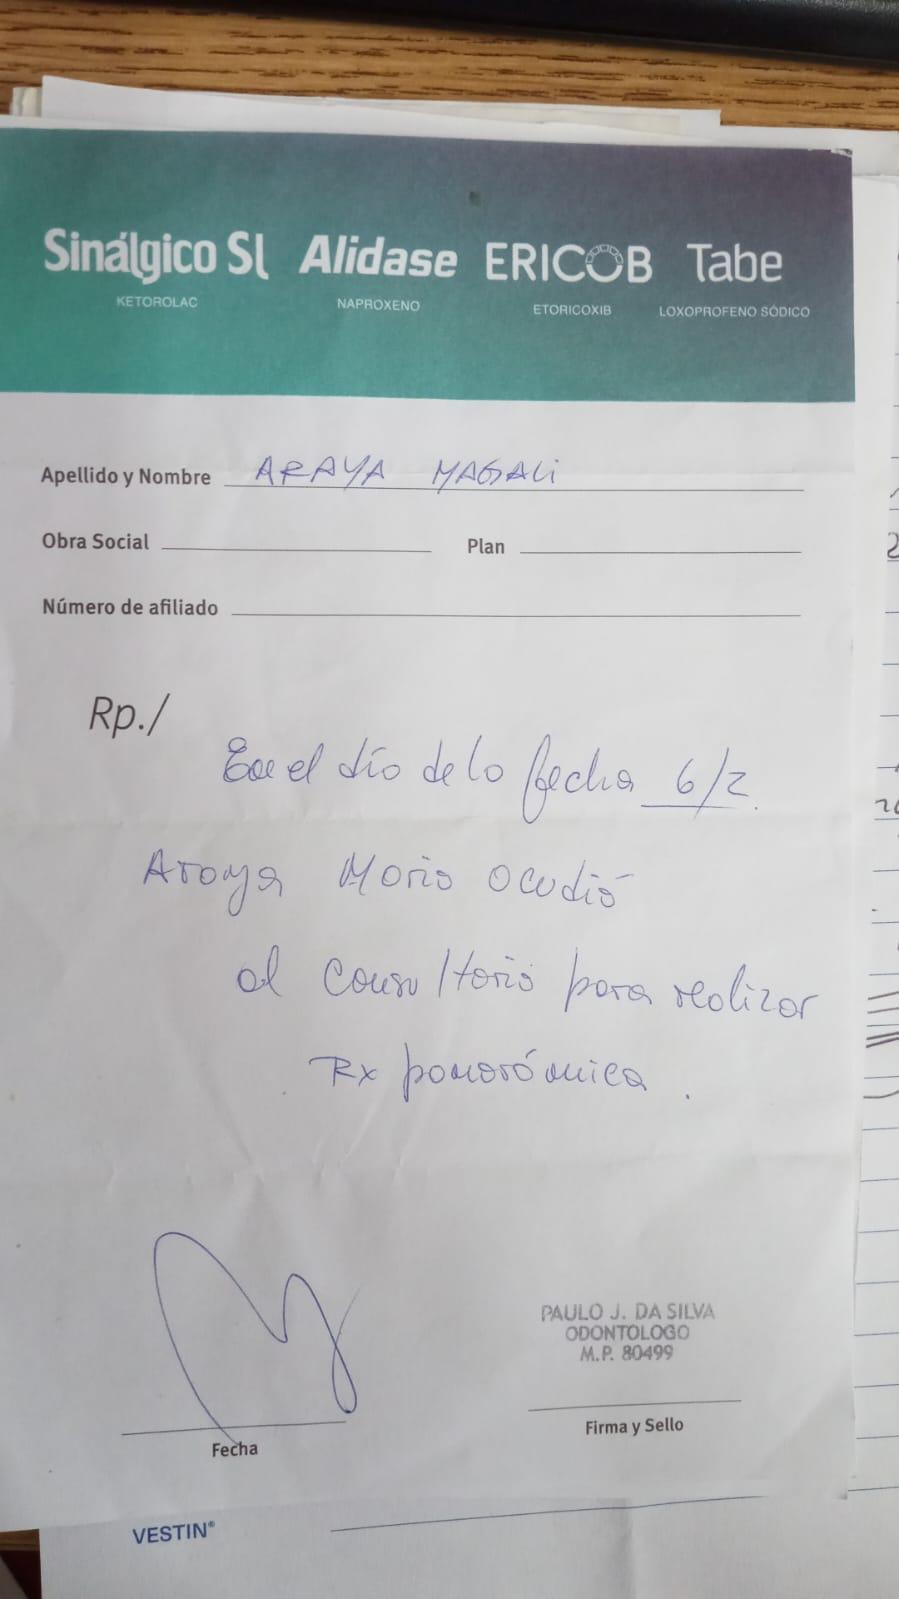 Sinálgico SL Alidase ERICOB Tabe
KETOROLAC NAPROXENO ETORICOXIB LOXOPROFENO SÓDICO
Apellido y Nombre ARAYA MAGALI
Obra Social Plan
Número de afiliado
Rp./
En el día de la fecha 6/2.
Araya María acudió
al consultorio para realizar
Rx panorámica.
PAULO J. DA SILVA
ODONTOLOGO
M.P. 80499
Fecha
Firma y Sello
VESTIN®